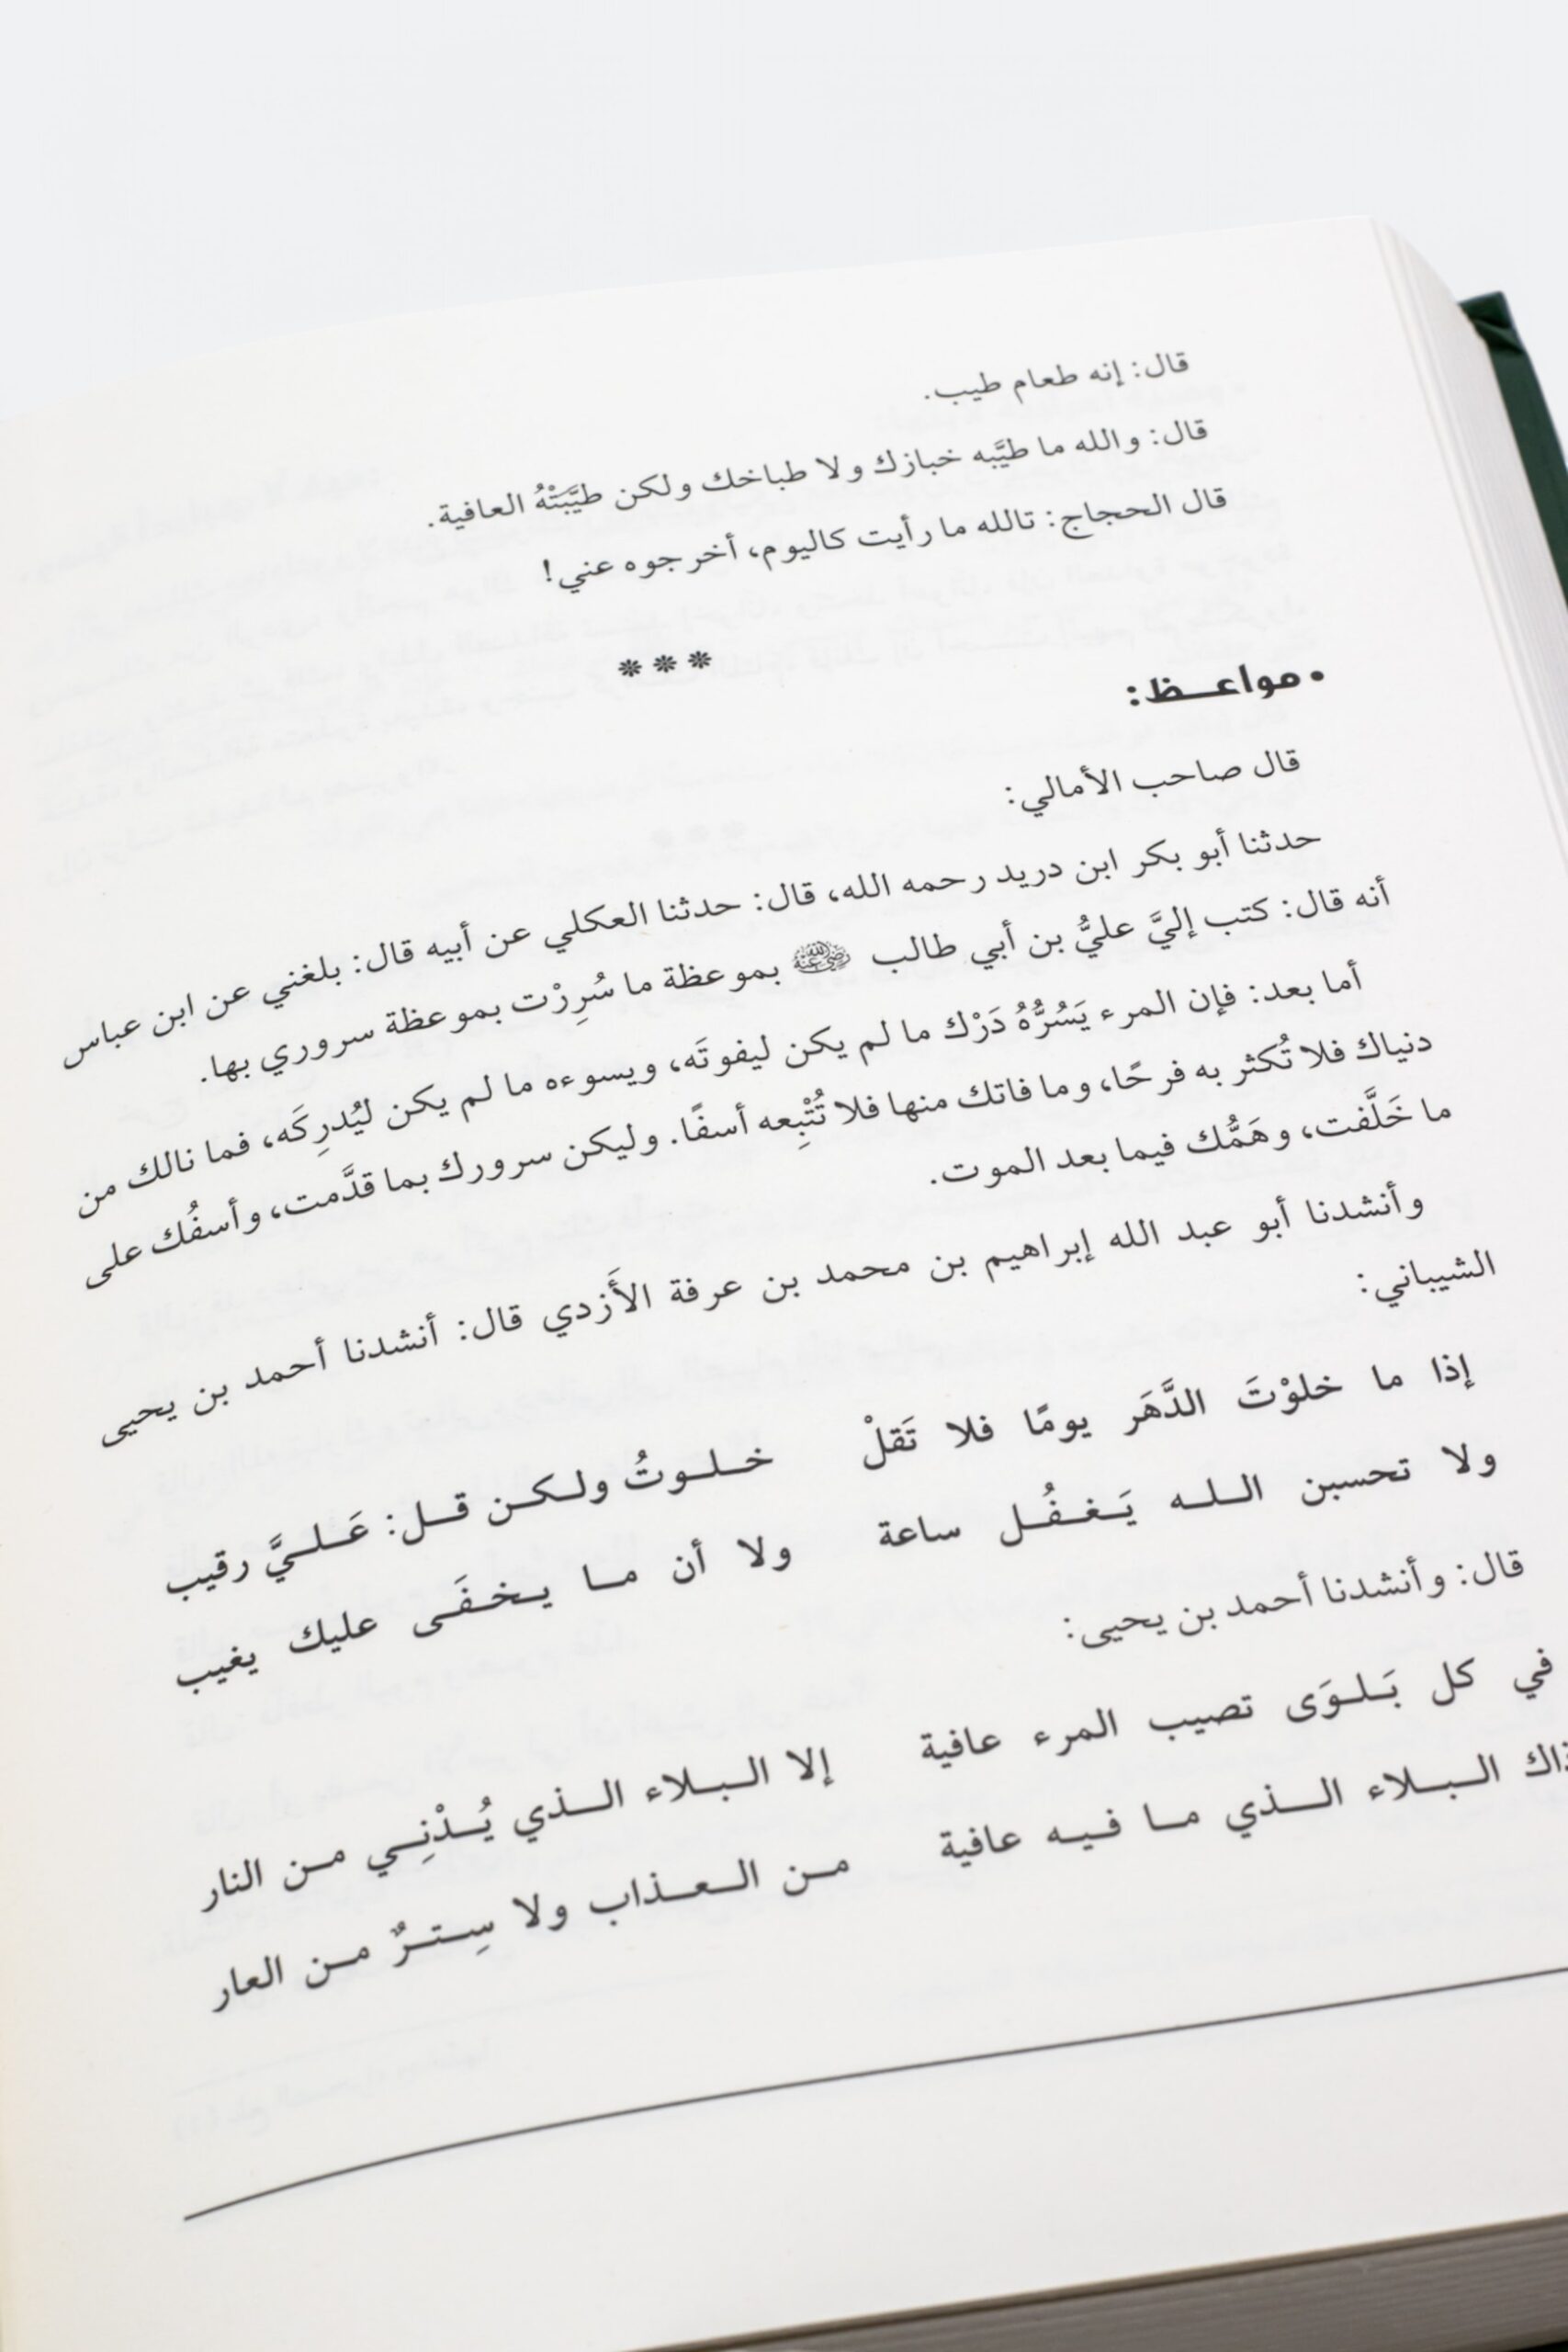 قال: إنه طعام طيب.
قال: والله ما طيَّبه خبازك ولا طباخك ولكن طيَّبَتْهُ العافية.
قال الحجاج: تالله ما رأيت كاليوم، أخرجوه عني!
***
• مواعـظ:
قال صاحب الأمالي:
حدثنا أبو بكر ابن دريد رحمه الله، قال: حدثنا العكلي عن أبيه قال: بلغني عن ابن عباس
أنه قال: كتب إليَّ عليُّ بن أبي طالب رضي الله عنه بموعظة ما سُرِرْت بموعظة سروري بها.
أما بعد: فإن المرء يَسُرُّهُ دَرْك ما لم يكن ليفوتَه، ويسوءه ما لم يكن ليُدرِكَه، فما نالك من
دنياك فلا تُكثر به فرحًا، وما فاتك منها فلا تُتْبِعه أسفًا. وليكن سرورك بما قدَّمت، وأسفُك على
ما خَلَّفت، وهَمُّك فيما بعد الموت.
وأنشدنا أبو عبد الله إبراهيم بن محمد بن عرفة الأَزدي قال: أنشدنا أحمد بن يحيى
الشيباني:
إذا ما خلوْتَ الدَّهَر يومًا فلا تَقلْ خـلـوتُ ولـكـن قـل: عَـلـيَّ رقيب
ولا تحسبن الـلـه يَـغـفُـل ساعة ولا أن مـا يـخـفَـى عليك يغيب
قال: وأنشدنا أحمد بن يحيى:
في كل بَـلـوَى تصيب المرء عافية إلا الـبـلاء الـذي يُـدْنِـي مـن النار
ذاك الـبـلاء الـذي مـا فـيـه عافية مـن الـعـذاب ولا سِـتـرٌ مـن العار